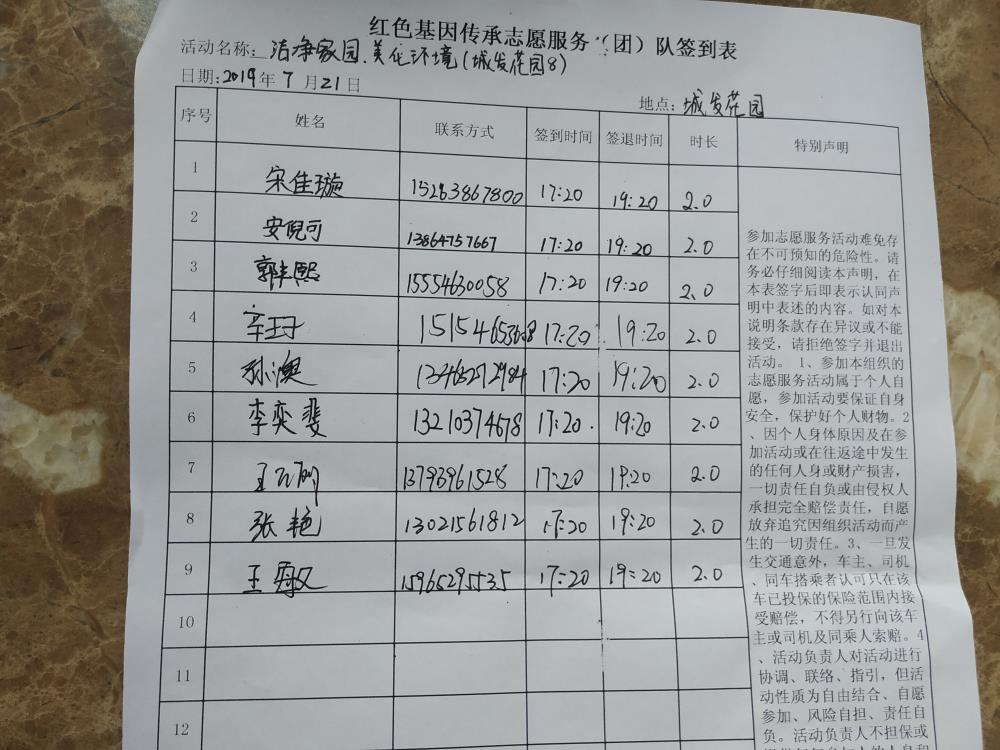 红色基因传承志愿服务（团）队签到表
活动名称：洁净家园、美化环境(城发花园8)
日期：2019年7月21日
地点：城发花园
序号 姓名 联系方式 签到时间 签退时间 时长 特别声明
1 宋佳璇 15263867800 17:20 19:20 2.0
2 安倪可 13864757667 17:20 19:20 2.0
3 郭丰熙 15554630058 17:20 19:20 2.0
4 辛玉子 17:20 19:20 2.0
5 孙澳 17:20 19:20 2.0
6 李奕斐 13210374678 17:20 19:20 2.0
7 王 13793961528 17:20 19:20 2.0
8 张艳 13021561812 17:20 19:20 2.0
9 王 15965295535 17:20 19:20 2.0
10
11
12
参加志愿服务活动难免存
在不可预知的危险性。请
务必仔细阅读本声明，在
本表签字后即表示认同声
明中表述的内容。如对本
说明条款存在异议或不能
接受，请拒绝签字并退出
活动。 1、参加本组织的
志愿服务活动属于个人自
愿，参加活动要保证自身
安全，保护好个人财物。2
、因个人身体原因及在参
加活动或在往返途中发生
的任何人身或财产损害，
一切责任自负或由侵权人
承担完全赔偿责任，自愿
放弃追究因组织活动而产
生的一切责任。3、一旦发
生交通意外，车主、司机
、同车搭乘者认可只在该
车已投保的保险范围内接
受赔偿，不得另行向该车
主或司机及同乘人索赔。4
、活动负责人对活动进行
协调、联络、指引，但活
动性质为自由结合、自愿
参加、风险自担、责任自
负。活动负责人不担保或